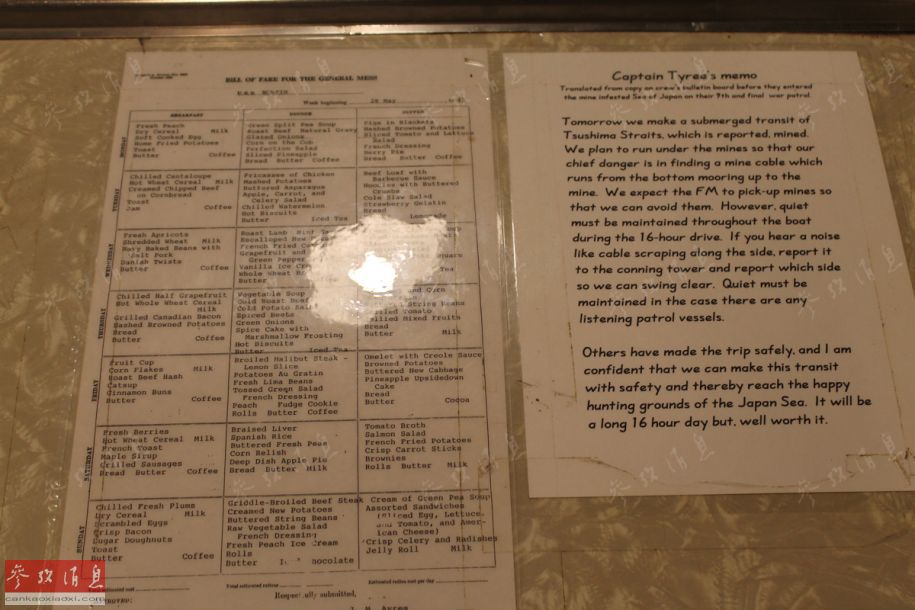 BILL OF FARE FOR THE GENERAL MESS
U.S.S. BOWFIN
Week beginning 28 May
BREAKFAST
DINNER
SUPPER
MONDAY
Fresh Peach
Dry Cereal Milk
Soft Cooked Egg
Home Fried Potatoes
Toast
Butter Coffee
Green Split Pea Soup
Roast Beef Natural Gravy
Glazed Onions
Corn on the Cob
Perfection Salad
Sliced Pineapple
Bread Butter Coffee
Pigs in Blankets
Hashed Browned Potatoes
Sliced Tomato and Lettuce
Salad
French Dressing
Berry Pie
Bread Butter Coffee
TUESDAY
Chilled Cantaloupe
Hot Wheat Cereal Milk
Creamed Chipped Beef
on Cornbread
Toast
Jam Coffee
Fricassee of Chicken
Mashed Potatoes
Buttered Asparagus
Apple, Carrot, and
Celery Salad
Chilled Watermelon
Hot Biscuits
Butter Iced Tea
Beef Loaf with
Barbecue Sauce
Noodles with Buttered
Crumbs
Cole Slaw Salad
Strawberry Gelatin
Bread
Lemonade
WEDNESDAY
Fresh Apricots
Shredded Wheat Milk
Navy Baked Beans with
Salt Pork
Danish Twists
Butter Coffee
Roast Lamb Mint
Escalloped
French Fried
Grapefruit and
Green Pepper
Vanilla Ice
Whole Wheat
Butter
Square
Tea
THURSDAY
Chilled Half Grapefruit
Hot Whole Wheat Cereal
Milk
Grilled Canadian Bacon
Hashed Browned Potatoes
Bread
Butter Coffee
Vegetable Soup
Cold Roast Beef
Cold Potato
Spiced Beets
Green Onions
Spice Cake with
Marshmallow Frosting
Hot Biscuits
Butter Iced Tea
and Corn
String Beans
Grilled Tomato
Chilled Mixed Fruits
Bread
Butter Milk
FRIDAY
Fruit Cup
Corn Flakes Milk
Roast Beef Hash
Catsup
Cinnamon Buns
Butter Coffee
Broiled Halibut Steak -
Lemon Slice
Potatoes Au Gratin
Fresh Lima Beans
Tossed Green Salad
French Dressing
Peach Fudge Cookie
Rolls Butter Coffee
Omelet with Creole Sauce
Browned Potatoes
Buttered New Cabbage
Pineapple Upsidedown
Cake
Bread
Butter Cocoa
SATURDAY
Fresh Berries
Hot Wheat Cereal Milk
French Toast
Maple Sirup
Grilled Sausages
Bread Butter Coffee
Braised Liver
Spanish Rice
Buttered Fresh Peas
Corn Relish
Deep Dish Apple Pie
Bread Butter Milk
Tomato Broth
Salmon Salad
French Fried Potatoes
Crisp Carrot Sticks
Brownies
Rolls Butter Milk
SUNDAY
Chilled Fresh Plums
Dry Cereal Milk
Scrambled Eggs
Crisp Bacon
Sugar Doughnuts
Toast
Butter Coffee
Griddle-Broiled Beef Steak
Creamed New Potatoes
Buttered String Beans
Raw Vegetable Salad
French Dressing
Fresh Peach Ice Cream
Rolls
Butter
Cream of Green Pea Soup
Assorted Sandwiches
(Sliced Egg, Lettuce
and Tomato, and Amer-
ican Cheese)
Crisp Celery and Radishes
Jelly Roll Milk
Respectfully submitted,
Captain Tyree's memo
Translated from copy on crew's bulletin board before they entered
the mine infested Sea of Japan on their 9th and final war patrol.
Tomorrow we make a submerged transit of
Tsushima Straits, which is reported, mined.
We plan to run under the mines so that our
chief danger is in finding a mine cable which
runs from the bottom mooring up to the
mine. We expect the FM to pick-up mines so
that we can avoid them. However, quiet
must be maintained throughout the boat
during the 16-hour drive. If you hear a noise
like cable scraping along the side, report it
to the conning tower and report which side
so we can swing clear. Quiet must be
maintained in the case there are any
listening patrol vessels.
Others have made the trip safely, and I am
confident that we can make this transit
with safety and thereby reach the happy
hunting grounds of the Japan Sea. It will be
a long 16 hour day but, well worth it.
参考消息
cankaoxiaoxi.com